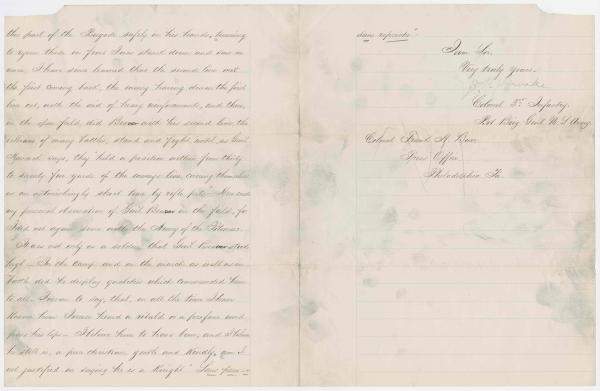 this part of the Brigade safely in his hands, turning
to rejoin those in front I was struck down and saw no
more. I have since learned that the second line met
the first coming back, the enemy bearing down the first
line met, with the aid of heavy reinforcements, and there,
in the open field, did Beaver with his second line, the
veterans of many battles, stand and fight, until, as Genl
says, they held a position within from thirty
to seventy five yards of the enemy's line, covering themselves
in an astonishingly short time by rifle pits." Here ends
my personal observation of Genl Beaver in the field, for
I did not again serve with the Army of the Potomac.
It was not only as a soldier that Genl Beaver stood
high – In the camp and on the march as well as in
battle did he display qualities which commended him
to all. I mean to say, that, in all the time I have
known him I never heard a ribald or a profane word
pass his lips – I believe him to have been, and I believe
he still is, a pure christian, gentle and kindly, am I
not justified in saying he is a Knight "Sans peur
sans reproche"
I am Sir,
Very truly yours,
Colonel 5" Infantry.
Bvt Brig Genl U.S. Army
Colonel Frank
Press Office
Philadelphia Pa